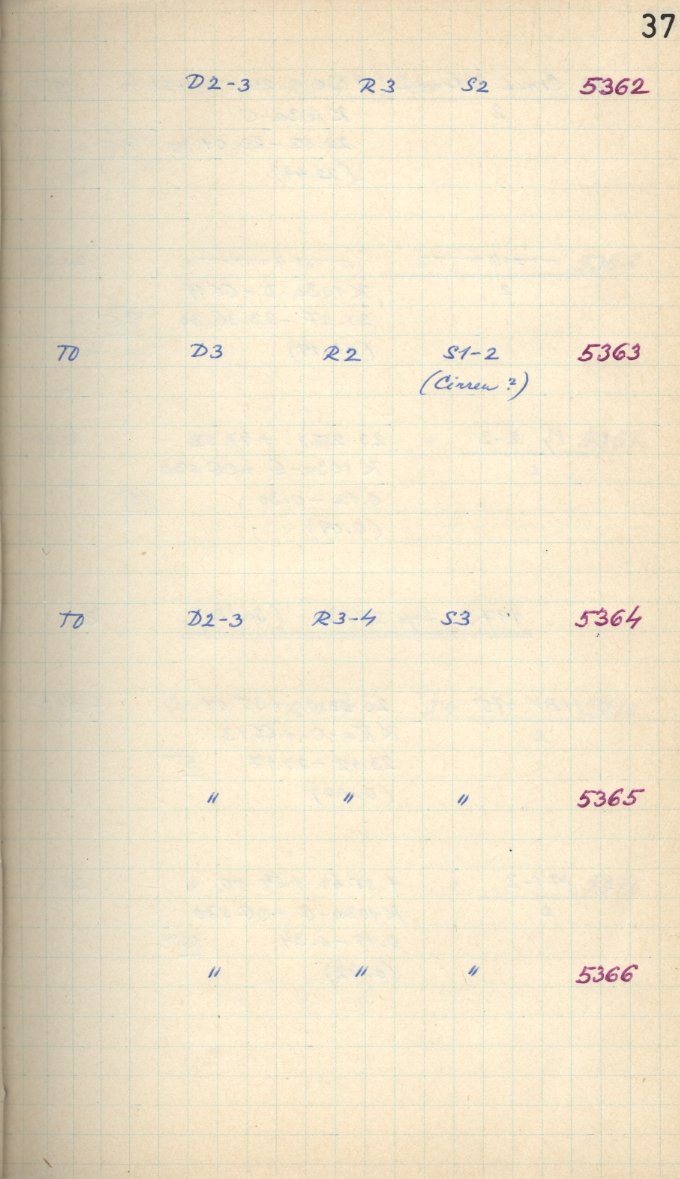 37
D2-3 R3 S2 5362
TO D3 R2 S1-2 5363
(Cirren ?)
TO D2-3 R3-4 S3 5364
" " " 5365
" " " 5366